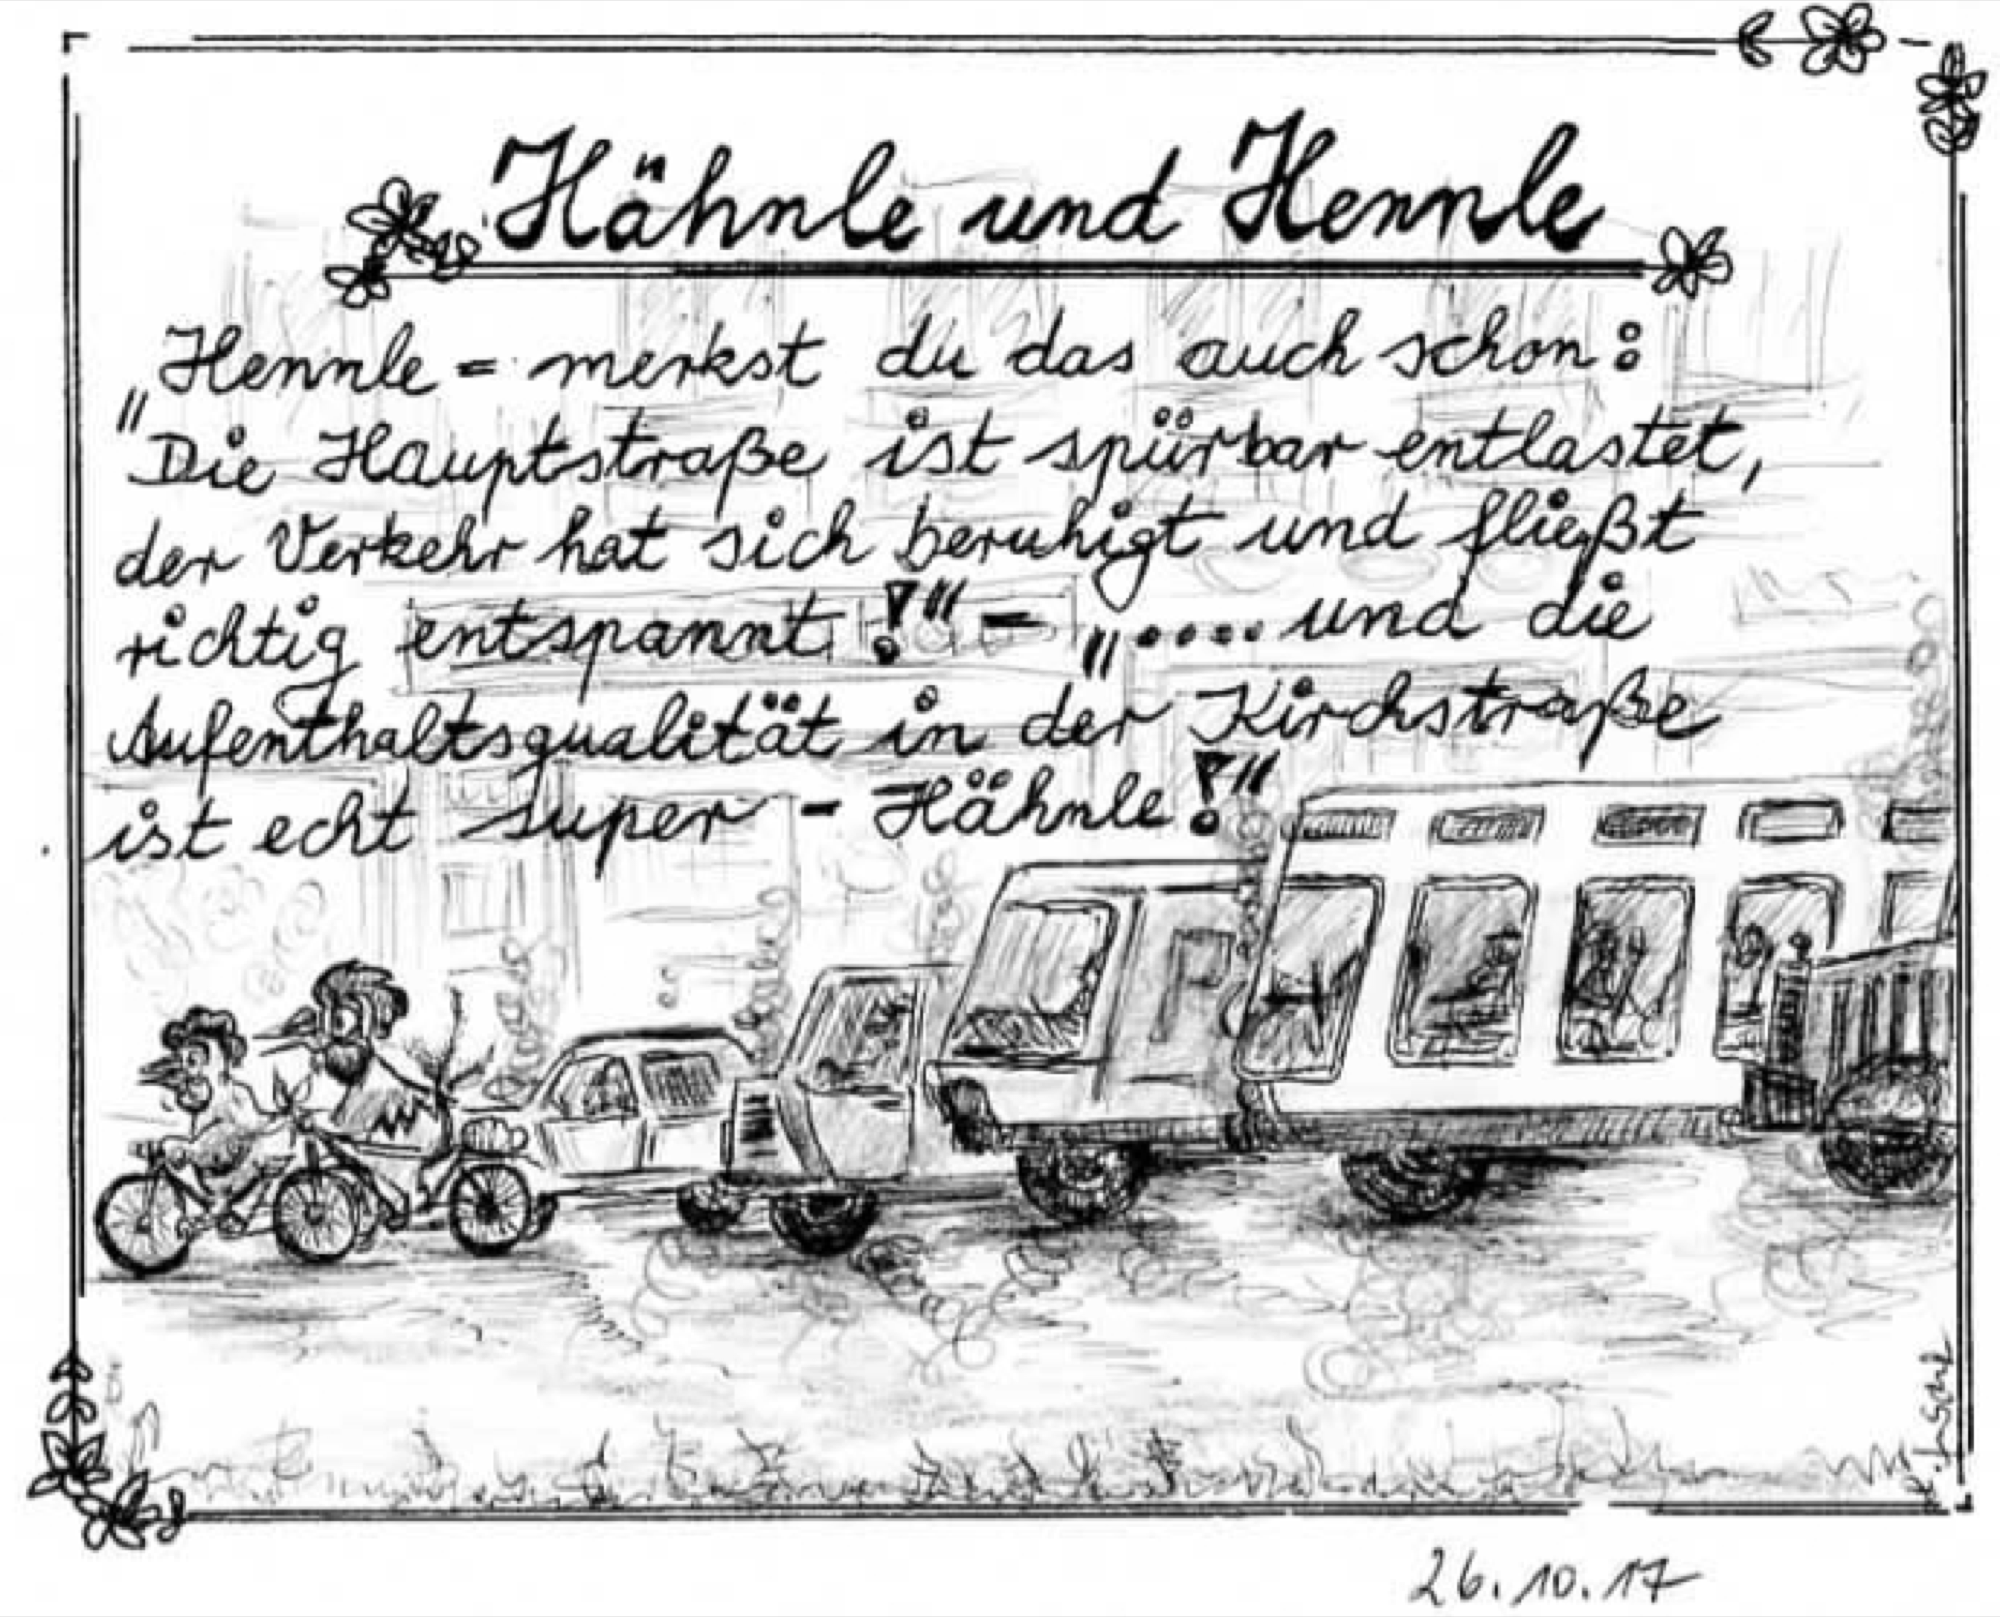 Hähnle und Hennle
„Hennle = merkst du das auch schon:
Die Hauptstraße ist spürbar entlastet,
der Verkehr hat sich beruhigt und fließt
richtig entspannt!" – „.... und die
Aufenthaltsqualität in der Kirchstraße
ist echt super – Hähnle!"
P
26.10.17